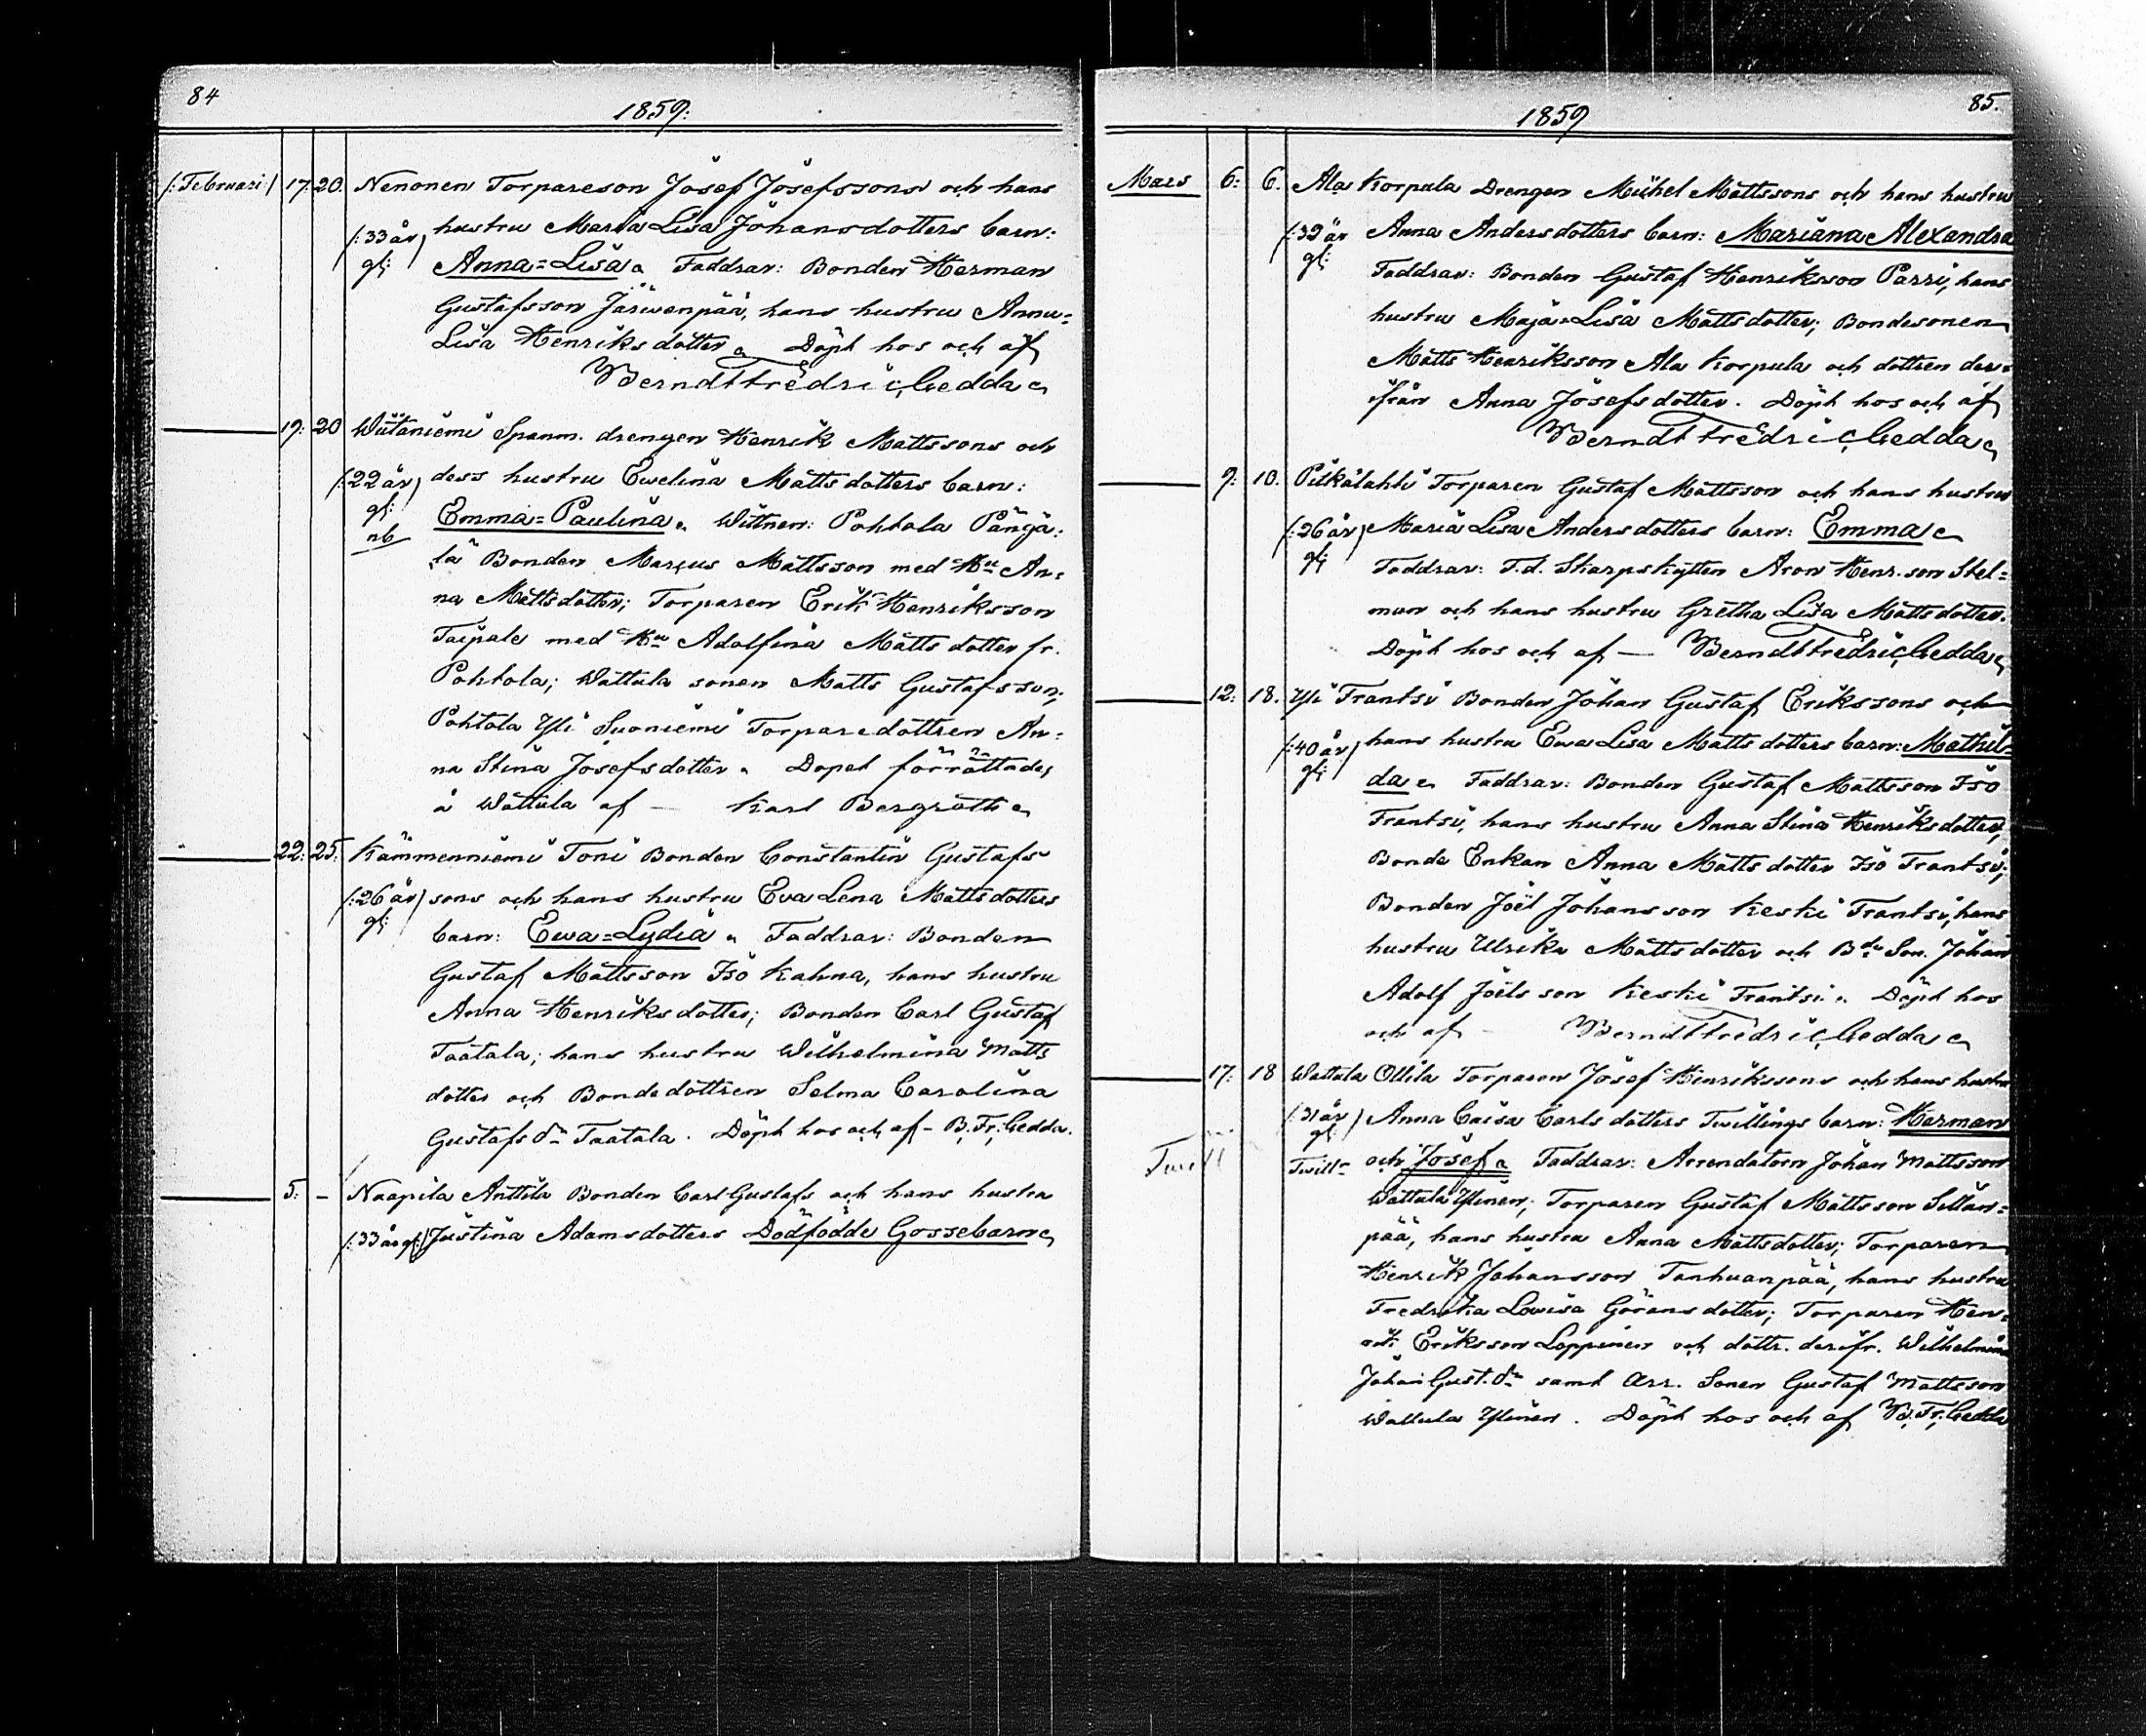 84
1859.
/: Februari :/ 17. 20. Nenonen Torpareson Josef Josefssons och hans
/: 33 år hustru Maria Lisa Johansdotters barn:
gl: Anna=Lisa. Faddrar: Bonden Herman
Gustafsson Järwenpää, hans hustru Anna=
Lisa Henriksdotter. Döpt hos och af
Berndt Fredric Gedda
19. 20 Wiitaniemi Spanm. drengen Henrik Mattssons och
/: 22 år dess hustru Ewelina Mattsdotters barn:
gl: Emma=Paulina. Wittnen: Pohtola Pängä=
nb
lä Bonden Marcus Mattsson med Hu An=
na Mattsdotter; Torparen Erik Henriksson
Taipale med Hu Adolfina Mattsdotter fr.
Pohtola; Wattula sonen Matts Gustafsson;
Pohtola Yli Suoniemi Torparedottren An=
na Stina Josefsdotter. Dopet förrättades
å Wattula af — Karl Bergroth
22. 25. Kämmenniemi Toni Bonden Constantin Gustafs
/: 26 år sons och hans hustru Eva Lena Mattsdotters
gl: barn: Ewa=Lydia. Faddrar: Bonden
Gustaf Mattsson Iso Kahma, hans hustru
Anna Henriksdotter; Bonden Carl Gustaf
Taatala; hans hustru Wilhelmina Matts
dotter och Bondedottren Selma Carolina
Gustafs dr Taatala. Döpt hos och af - B. Fr. Gedda.
5. — Naapila Anttila Bonden Carl Gustafs och hans hustru
/: 33 år gl: Justina Adamsdotters Dödfödde Gossebarn
1859
85.
Mars 6. 6. Ala Korpula Drengen Mickel Mattssons och hans hustru
/: 39 år Anna Andersdotters barn: Mariana Alexandra
gl: Faddrar: Bonden Gustaf Henriksson Parri, hans
hustru Maja=Lisa Mattsdotter; Bondesonen
Matts Henriksson Ala Korpula och dottren der=
ifrån Anna Josefsdotter. Döpt hos och af
Berndt Fredric Gedda
9. 10. Pitkälahti Torparen Gustaf Mattsson och hans hustru
/: 26 år Maria Lisa Andersdotters barn: Emma
gl: Faddrar: F.d. Skarpskytten Aron Henr.son Stel=
man och hans hustru Gretha Lisa Mattsdotter.
Döpt hos och af — Berndt Fredric Gedda
12. 18. Yli Frantsi Bonden Johan Gustaf Erikssons och
/: 40 år hans hustru Ewa Lisa Mattsdotters barn: Mathil=
gl: da. Faddrar: Bonden Gustaf Mattsson Iso
Frantsi, hans hustru Anna Stina Henriksdotter,
Bonde Enkan Anna Mattsdotter Iso Frantsi;
Bonden Joël Johansson Keski Frantsi, hans
hustru Ulrika Mattsdotter och Bde Son. Johan
Adolf Joëls son Keski Frantsi. Döpt hos
och af — Berndt Fredric Gedda
17. 18 Wattula Ollila Torparen Josef Henrikssons och hans hustru
/: 31 år Anna Caisa Carlsdotters Twillings barn: Herman
gl:
Twill Twill- och Josef. Faddrar: Arrendatorn Johan Mattsson
Wattula Ylinen; Torparen Gustaf Mattsson Sillan=
pää, hans hustru Anna Mattsdotter; Torparen
Henrik Johansson Tanhuanpää, hans hustru
Fredrika Lowisa Göransdotter; Torparen Hen=
rik Eriksson Leppinen och dottr. derifr. Wilhelmina
Johan Gust. dr samt Arr. Sonen Gustaf Mattsson
Wattula Ylinen. Döpt hos och af B. Fr. Gedda